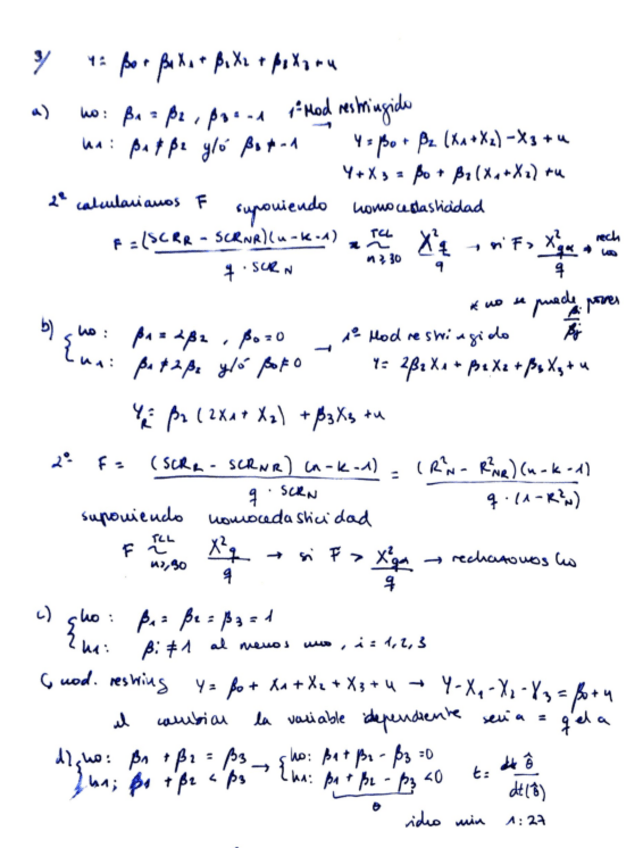 3/ Y = β0 + β1X1 + β2X2 + β3X3 + u
a) H0: β1 = β2 , β3 = -1 1º Mod restringido
H1: β1 ≠ β2 y/ó β3 ≠ -1 Y = β0 + β2 (X1+X2) - X3 + u
Y + X3 = β0 + β2 (X1+X2) + u
2º calcularíamos F suponiendo homocedasticidad
F = (SCRR - SCRNR)(n-k-1) / q · SCRN ≈ TCL ~ n≥30 X²q / q → si F > X²qα / q → rech H0
* no se puede poner βi / βj
b) { H0: β1 = 2β2 , β0 = 0 → 1º Mod restringido
H1: β1 ≠ 2β2 y/ó β0 ≠ 0 Y = 2β2X1 + β2X2 + β3X3 + u
YR = β2 (2X1 + X2) + β3X3 + u
2º F = (SCRR - SCRNR) (n-k-1) / q · SCRN = (R²N - R²NR)(n-k-1) / q · (1-R²N)
suponiendo homocedasticidad
F TCL ~ n≥30 X²q / q → si F > X²qα / q → rechazamos H0
c) { H0: β1 = β2 = β3 = 1
H1: βi ≠ 1 al menos uno , i = 1,2,3
↳ mod. restring Y = β0 + X1 + X2 + X3 + u → Y-X1-X2-X3 = β0 + u
al cambiar la variable dependiente sería = q el a
d) { H0: β1 + β2 = β3 → { H0: β1 + β2 - β3 = 0
H1: β1 + β2 < β3 H1: β1 + β2 - β3 < 0 t = θ̂ / dt(θ̂)
θ
video min 1:27